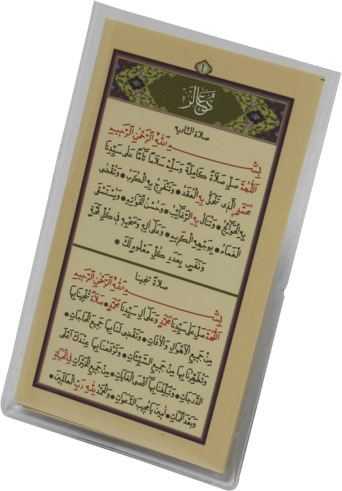 ١
دعالر
بِسْمِ اللّٰهِ الرَّحْمٰنِ الرَّحِيمِ
اَللّٰهُمَّ صَلِّ صَلَاةً كَامِلَةً وَسَلِّمْ سَلَامًا تَامًّا عَلَى سَيِّدِنَا
مُحَمَّدٍ الَّذِي تَنْحَلُّ بِهِ الْعُقَدُ وَتَنْفَرِجُ بِهِ الْكُرَبُ وَتُقْضَى
بِهِ الْحَوَائِجُ وَتُنَالُ بِهِ الرَّغَائِبُ وَحُسْنُ الْخَوَاتِمِ وَيُسْتَسْقَى
الْغَمَامُ بِوَجْهِهِ الْكَرِيمِ وَعَلَى اٰلِهِ وَصَحْبِهِ فِي كُلِّ لَمْحَةٍ
وَنَفَسٍ بِعَدَدِ كُلِّ مَعْلُومٍ لَكَ
صلاة تنجينا
بِسْمِ اللّٰهِ الرَّحْمٰنِ الرَّحِيمِ
اَللّٰهُمَّ صَلِّ عَلَى سَيِّدِنَا مُحَمَّدٍ وَعَلَى اٰلِ سَيِّدِنَا مُحَمَّدٍ صَلَاةً تُنْجِينَا بِهَا
مِنْ جَمِيعِ الْأَهْوَالِ وَالْاٰفَاتِ وَتَقْضِي لَنَا بِهَا جَمِيعَ الْحَاجَاتِ
وَتُطَهِّرُنَا بِهَا مِنْ جَمِيعِ السَّيِّئَاتِ وَتَرْفَعُنَا بِهَا عِنْدَكَ أَعْلَى
الدَّرَجَاتِ وَتُبَلِّغُنَا بِهَا أَقْصَى الْغَايَاتِ مِنْ جَمِيعِ الْخَيْرَاتِ فِي الْحَيَاةِ
وَبَعْدَ الْمَمَاتِ اٰمِينَ يَا مُجِيبَ الدَّعَوَاتِ وَالْحَمْدُ لِلّٰهِ رَبِّ الْعَالَمِينَ